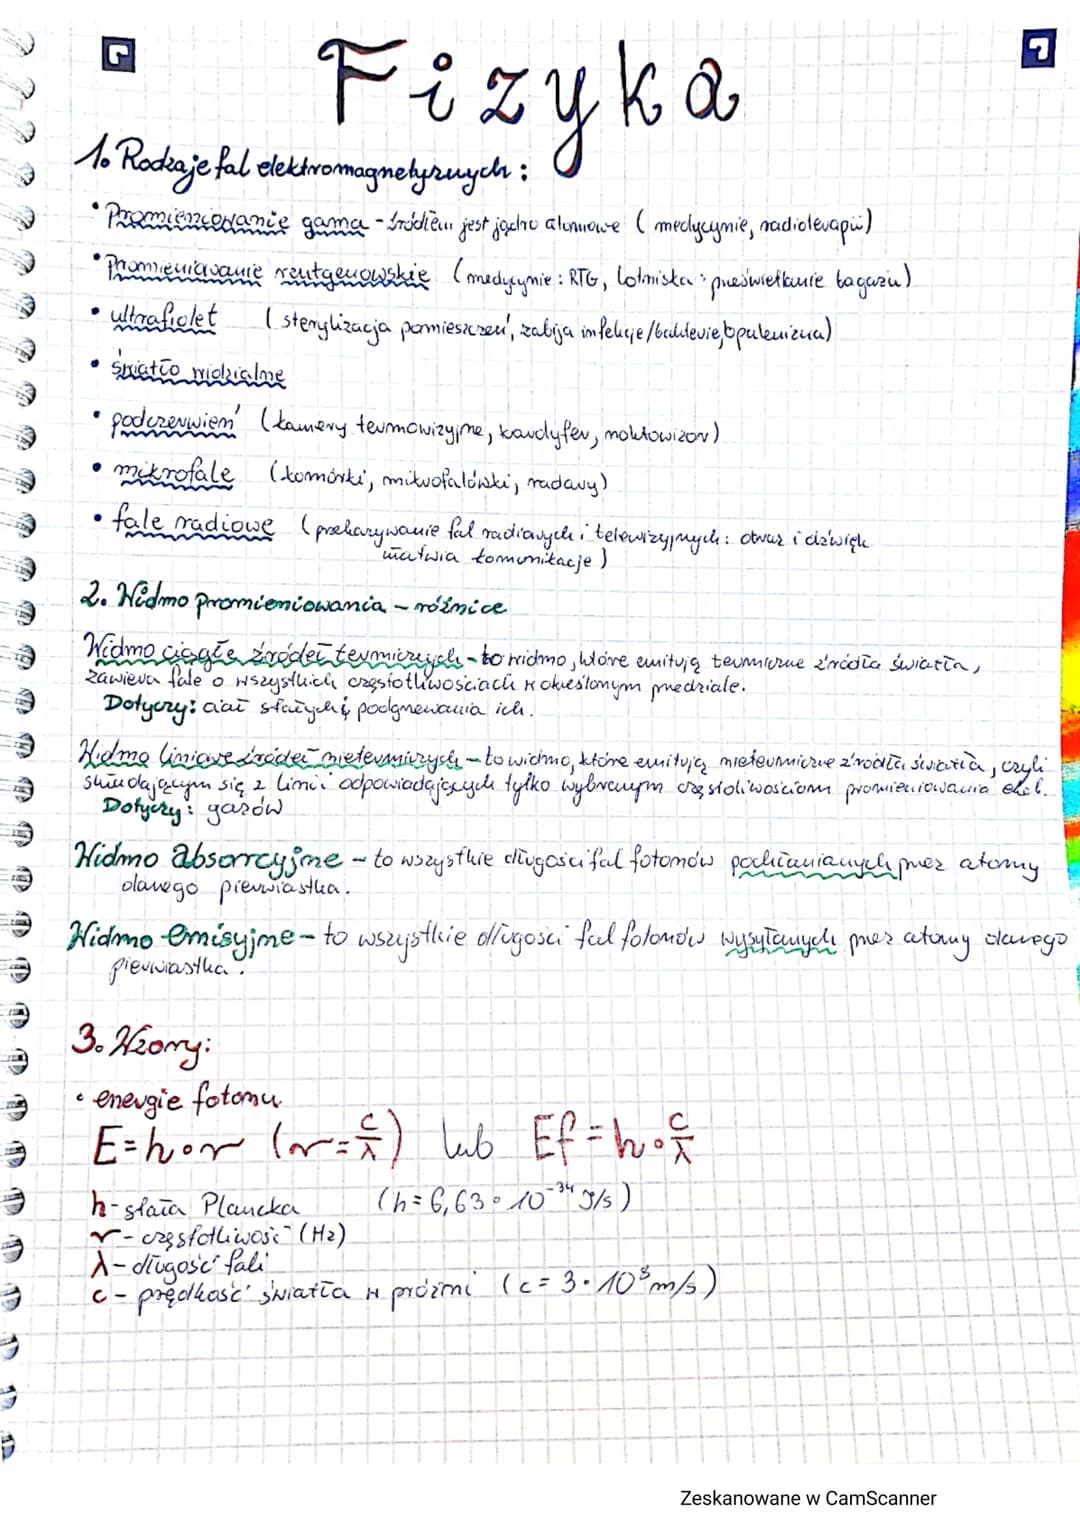 Fizyka
1. Rodzaje fal elektromagnetycznych:
• Promieniowanie gama - źródłem jest jądro atomowe ( medycynie, radioterapii)
• Promieniowanie rentgenowskie ( medycynie : RTG, lotniska : prześwietlanie bagażu)
• ultrafiolet ( sterylizacja pomieszczeń, zabija infekcje/bakterie, opalenizna)
• światło widzialne
• podczerwień (kamery termowizyjne, kaloryfer, noktowizor)
• mikrofale (komórki, mikrofalówki, radary)
• fale radiowe (przekazywanie fal radiowych i telewizyjnych: obraz i dźwięk
ułatwia komunikacje )
2. Widmo promieniowania - różnice
Widmo ciągłe źródeł termicznych - to widmo, które emitują termiczne źródła światła,
zawiera fale o wszystkich częstotliwościach w określonym przedziale.
Dotyczy: ciał stałych i podgrzewania ich.
Widmo liniowe źródeł nietermicznych - to widmo, które emitują nietermiczne źródła światła, czyli
składającym się z linii odpowiadających tylko wybranym częstotliwościom promieniowania elek.
Dotyczy: gazów
Widmo absorcyjne - to wszystkie długości fal fotonów pochłanianych przez atomy
danego pierwiastka.
Widmo emisyjne - to wszystkie długości fal fotonów wysyłanych przez atomy danego
pierwiastka.
3. Wzory:
• energie fotonu
E=h∘ν (ν=c/λ) lub Ef=h∘c/λ
h-stała Plancka (h=6,63∘10⁻³⁴ J/s)
ν - częstotliwość (Hz)
λ - długość fali
c - prędkość światła w próżni (c=3∘10⁸ m/s)
Zeskanowane w CamScanner